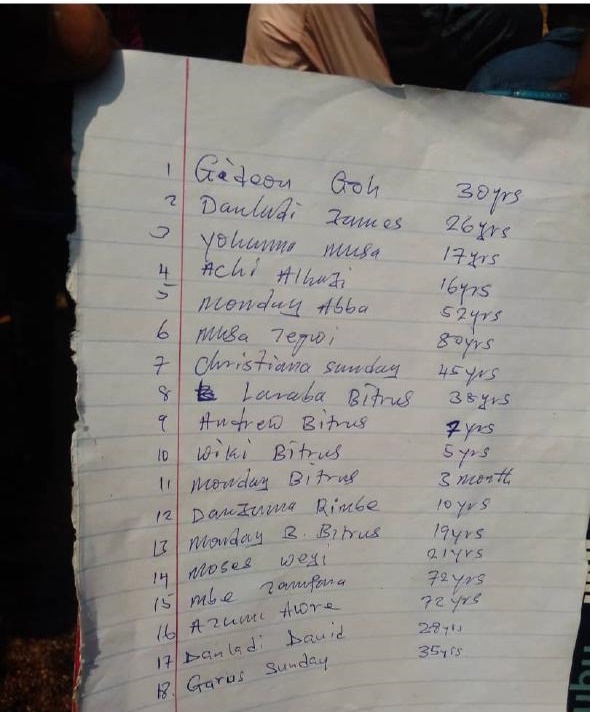 1 Gideon Goh 30yrs
2 Danladi James 26yrs
3 Yohanna Musa 17yrs
4 Achi Alhaji 16yrs
5 Monday Abba 52yrs
6 Musa 80yrs
7 Christiana Sunday 45yrs
8 Laraba Bitrus 38yrs
9 Andrew Bitrus 7yrs
10 Wiki Bitrus 5yrs
11 Monday Bitrus 3 month
12 DanJuma Rimbe 10yrs
13 Monday B. Bitrus 19yrs
14 Moses Weyi 21yrs
15 Mbe Zamfara 72yrs
16 Azumi 72yrs
17 Danladi David 28yrs
18. Garus Sunday 35yrs